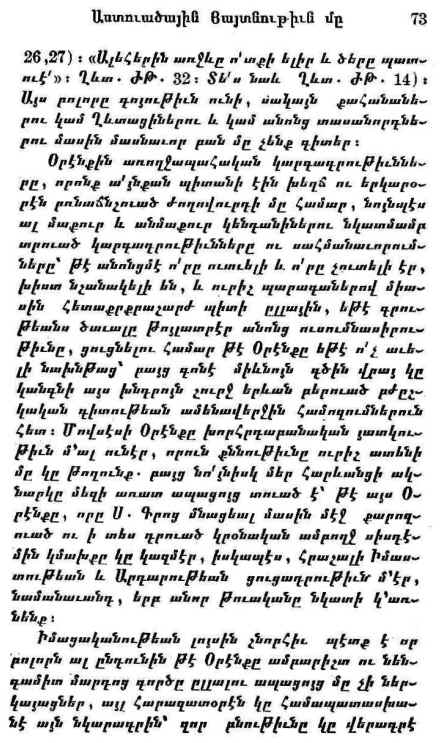 Աստուածային Յայտնութիւն մը 73
26,27) ։ «Ալեհերին առջևը ո՛տքի ելիր և ծերը պատ-
ուէ՛»։ Ղևտ. ԺԹ. 32։ Տե՛ս նաև Ղևտ. ԺԹ. 14)։
Այս բոլորը գոյութիւն ունի, սակայն քահանանե-
րու կամ Ղևտացիներու և կամ անոնց տասանորդնե-
րու մասին մասնաւոր բան մը չենք գիտեր։
Օրէնքին առողջապահական կարգադրութիւննե-
րը, որոնք ա՛յնքան պիտանի էին խեղճ ու երկարօ-
րէն բռնաճնշուած ժողովուրդի մը համար, նոյնպէս
ալ մաքուր և անմաքուր կենդանիներու նկատմամբ
տրուած կարգադրութիւնները ու սահմանաւորում-
ները՝ թէ անոնցմէ ո՛րը ուտուելի և ո՛րը չուտելի էր,
խիստ նշանակելի են, և ուրիչ պարագաներով միա-
սին հետաքրքրաշարժ պիտի ըլլային, եթէ գրու-
թեանս ծաւալը թոյլատրէր անոնց ուսումնասիրու-
թիւնը, ցուցնելու համար թէ Օրէնքը եթէ ո՛չ աւե-
լի նախնթաց՝ բայց գոնէ միևնոյն գծին վրայ կը
կանգնի այս խնդրոյն շուրջ երևան բերուած բժըշ-
կական գիտութեան ամենավերջին համոզումներուն
հետ։ Մովսէսի Օրէնքը խորհրդարանական յատկու-
թիւն մ՚ալ ունէր, որուն քննութիւնը ուրիչ ատենի
մը կը թողունք. բայց նո՛յնիսկ մեր հարևանցի ակ-
նարկը մեզի առատ ապացոյց տուած է՝ թէ այս Օ-
րէնքը, որը Ս. Գրոց մնացեալ մասին մէջ քարոզ-
ուած ու ի տես դրուած կրօնական ամբողջ սիսդէ-
մին կմախքը կը կազմէր, իսկապէս, հրաշալի Իմաս-
տութեան և Արդարութեան ցուցադրութիւն մ՚էր,
նամանաւանդ, երբ անոր թուականը նկատի կ՚առ-
նենք։
Իմացականութեան լոյսին շնորհիւ պէտք է որ
բոլորն ալ ընդունին թէ Օրէնքը ամբարիշտ ու նեն-
գամիտ մարդոց գործը ըլլալու ապացոյց մը չի ներ-
կայացներ, այլ հարազատօրէն կը համապատասխա-
նէ այն նկարագրին՝ զոր բնութիւնը կը վերագրէ